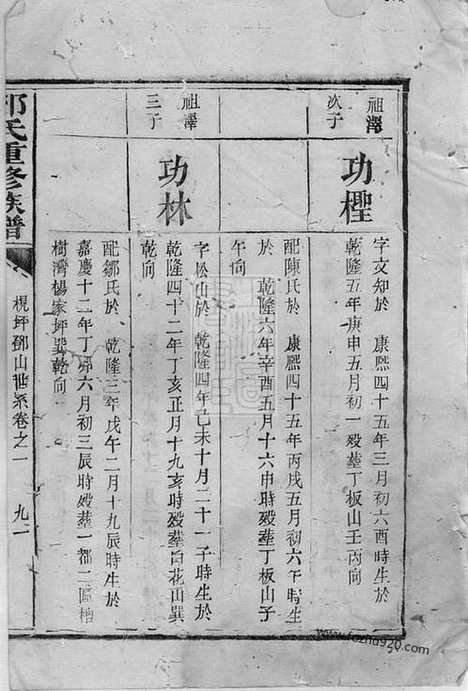 祖澤
次子
功檉
字文知於 康熙四十五年三月初六酉時生於
乾隆五年庚申五月初一歿塟丁板山壬丙向
配陳氏於 康熙四十五年丙戌五月初六午時生
於 乾隆六年辛酉五月十六申時歿塟丁板山子
午向
祖澤
三子
功林
字松山於 乾隆四年己未十月二十一子時生於
乾隆四十二年丁亥正月十九亥時歿塟百花山巽
乾向
配鄒氏於 乾隆三年戊午二月十九辰時生於
嘉慶十二年丁卯六月初三辰時歿塟一都二區檀
樹灣楊家坪巽乾向
氏重修族譜
梘坪鄧山世系卷之一
九一
www.fozhu920.com